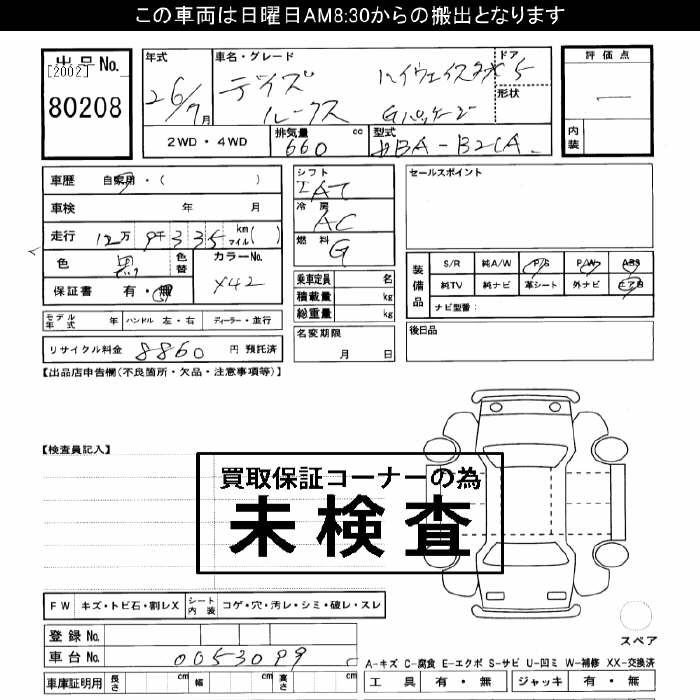 この車両は日曜日AM8:30からの搬出となります
出品No.
[2002]
80208
年式
26/7月
車名・グレード
デイズ
ルークス
ハイウェイスター
Gパッケージ
ドア
5
形状
評価点
―
内装
2WD・4WD
排気量 660 cc
型式 DBA-B21A
車歴 自家用・( )
車検 年 月
走行 12万9千335km マイル( )
色 黒 色替
カラーNo. X42
保証書 有・無
シフト
IAT
冷房
AC
燃料
G
乗車定員 名
積載量 kg
総重量 kg
名変期限
月 日
セールスポイント
装備品
S/R 純A/W P/S P/W ABS
純TV 純ナビ 革シート 外ナビ エアB
ナビ型番:
後日品
モデル年式 年 ハンドル 左・右 ディーラー・並行
リサイクル料金 8860 円 預託済
【出品店申告欄(不良箇所・欠品・注意事項等)】
【検査員記入】
買取保証コーナーの為
未検査
FW キズ・トビ石・割レX シート内装 コゲ・穴・汚レ・シミ・破レ・スレ
登録No.
車台No. 0053099
車庫証明用 長さ cm 幅 cm 高さ cm
スペア
A-キズ C-腐食 E-エクボ S-サビ U-凹ミ W-補修 XX-交換済
工具 有・無 ジャッキ 有・無